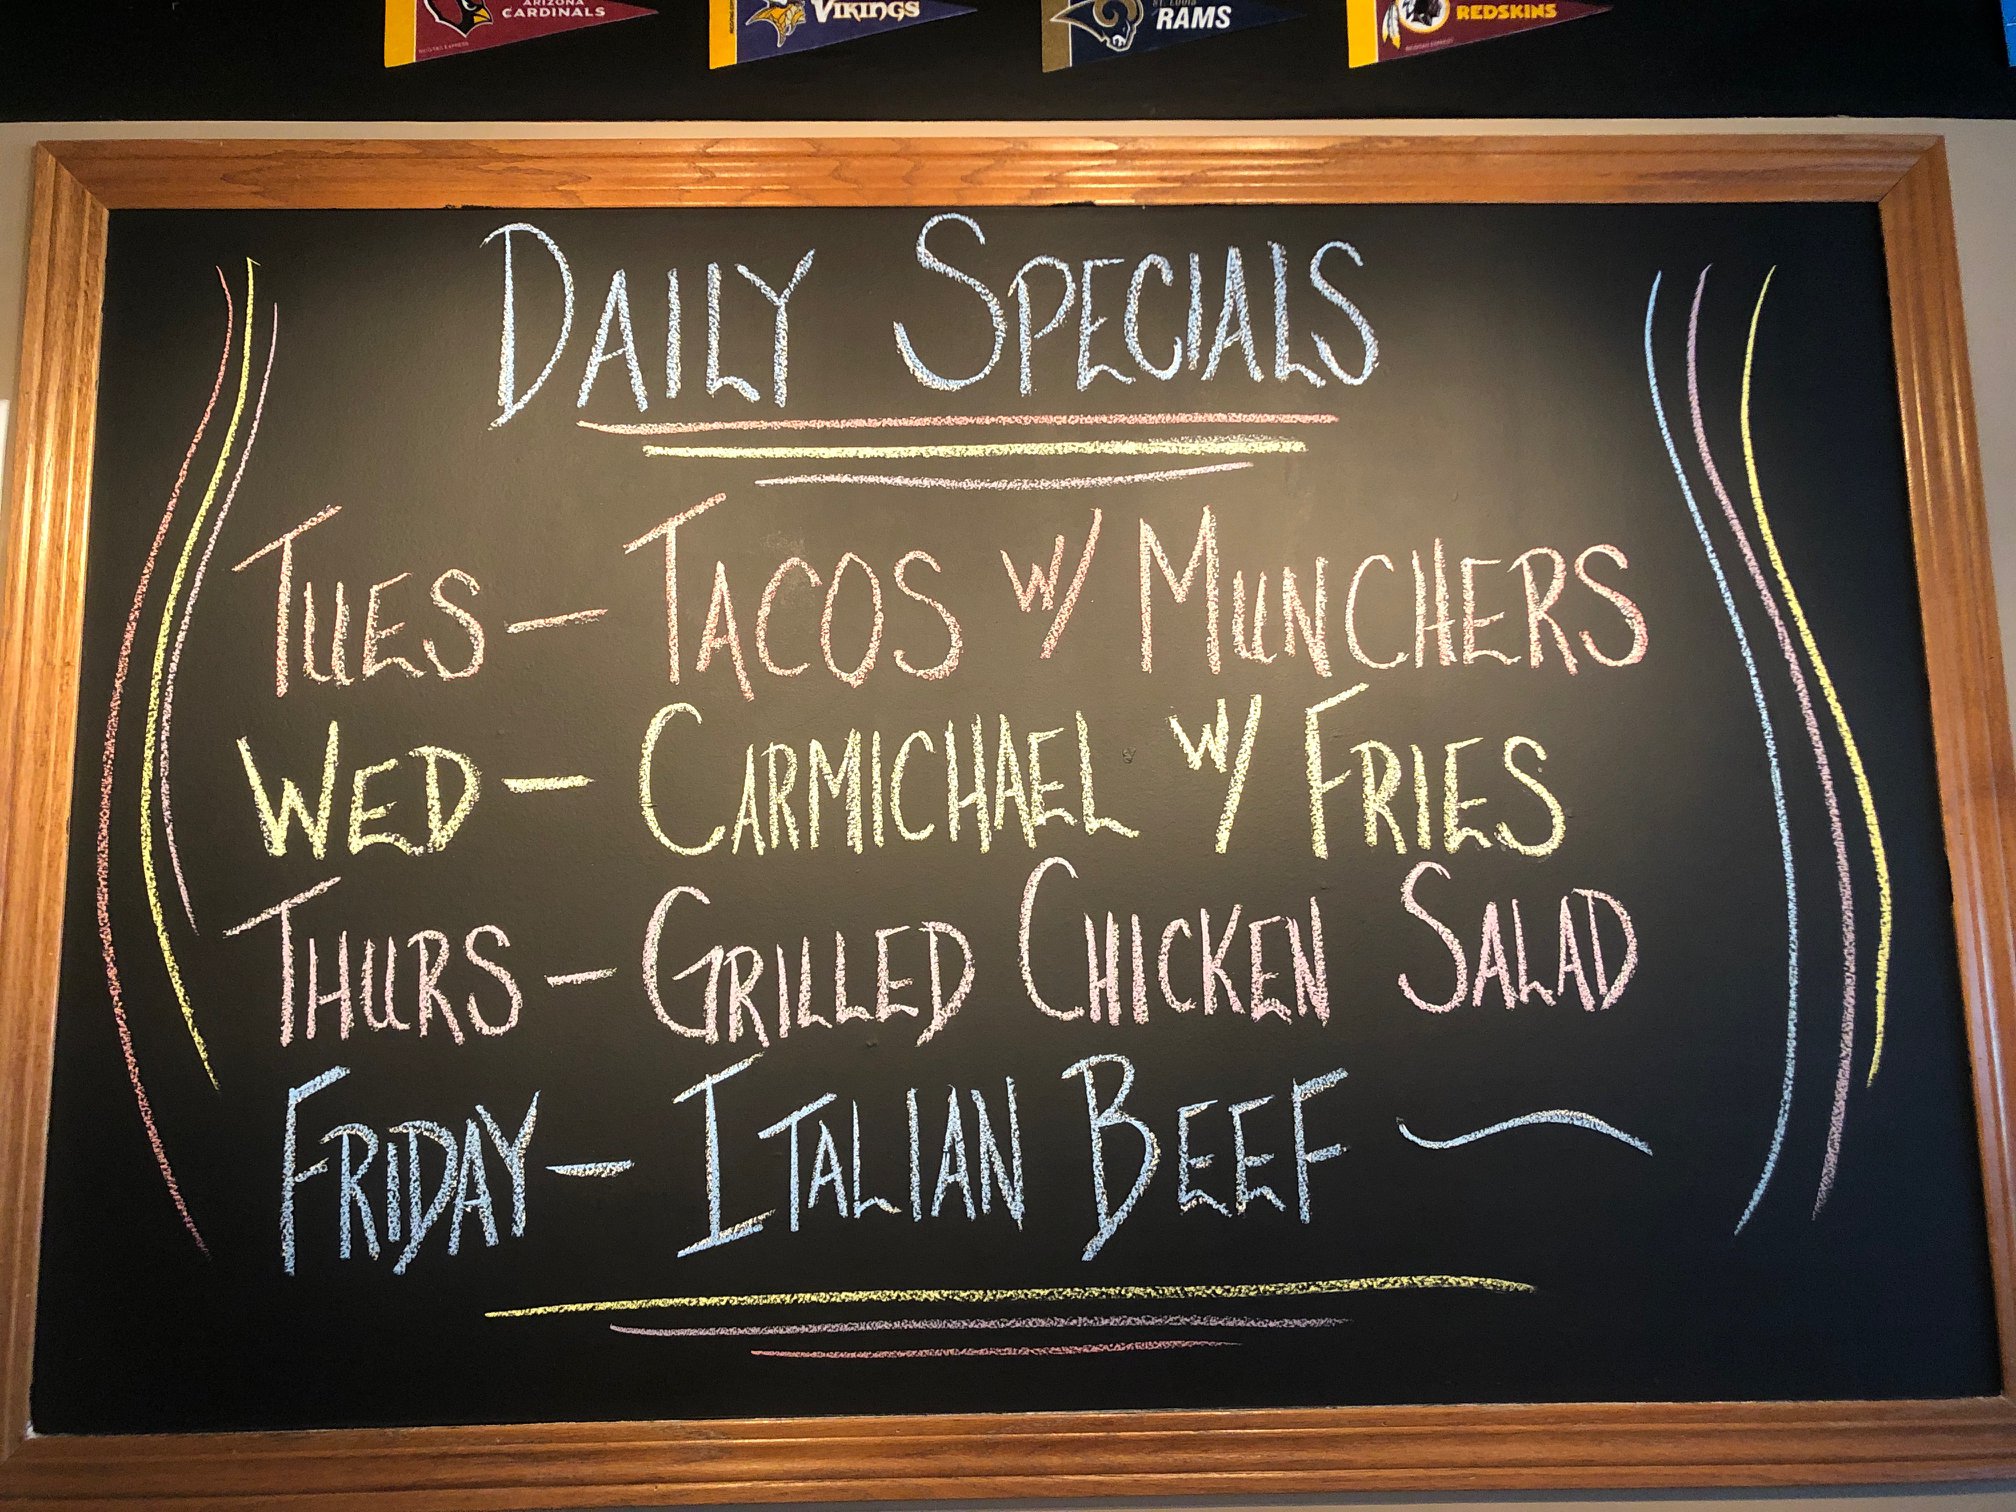 ARIZONA
CARDINALS
VIKINGS
ST. LOUIS
RAMS
REDSKINS
DAILY SPECIALS
TUES — TACOS W/ MUNCHERS
WED — CARMICHAEL W/ FRIES
THURS — GRILLED CHICKEN SALAD
FRIDAY — ITALIAN BEEF